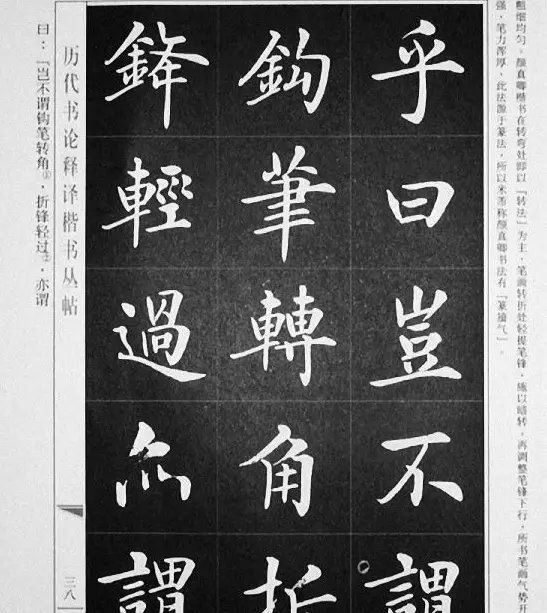 粗细均匀。颜真卿楷书在转弯处即以“转法”为主，笔画转折处轻提笔锋，施以暗转，再调整笔锋下行，所书笔画气势开
强，笔力浑厚，此法源于篆法，所以米芾称颜真卿书法有“篆籀气”。
乎曰豈不謂
鈎筆轉角折
鋒輕過亦謂
历代书论释译楷书丛帖
三八
曰：“岂不谓钩笔转角①，折锋轻过②，亦谓